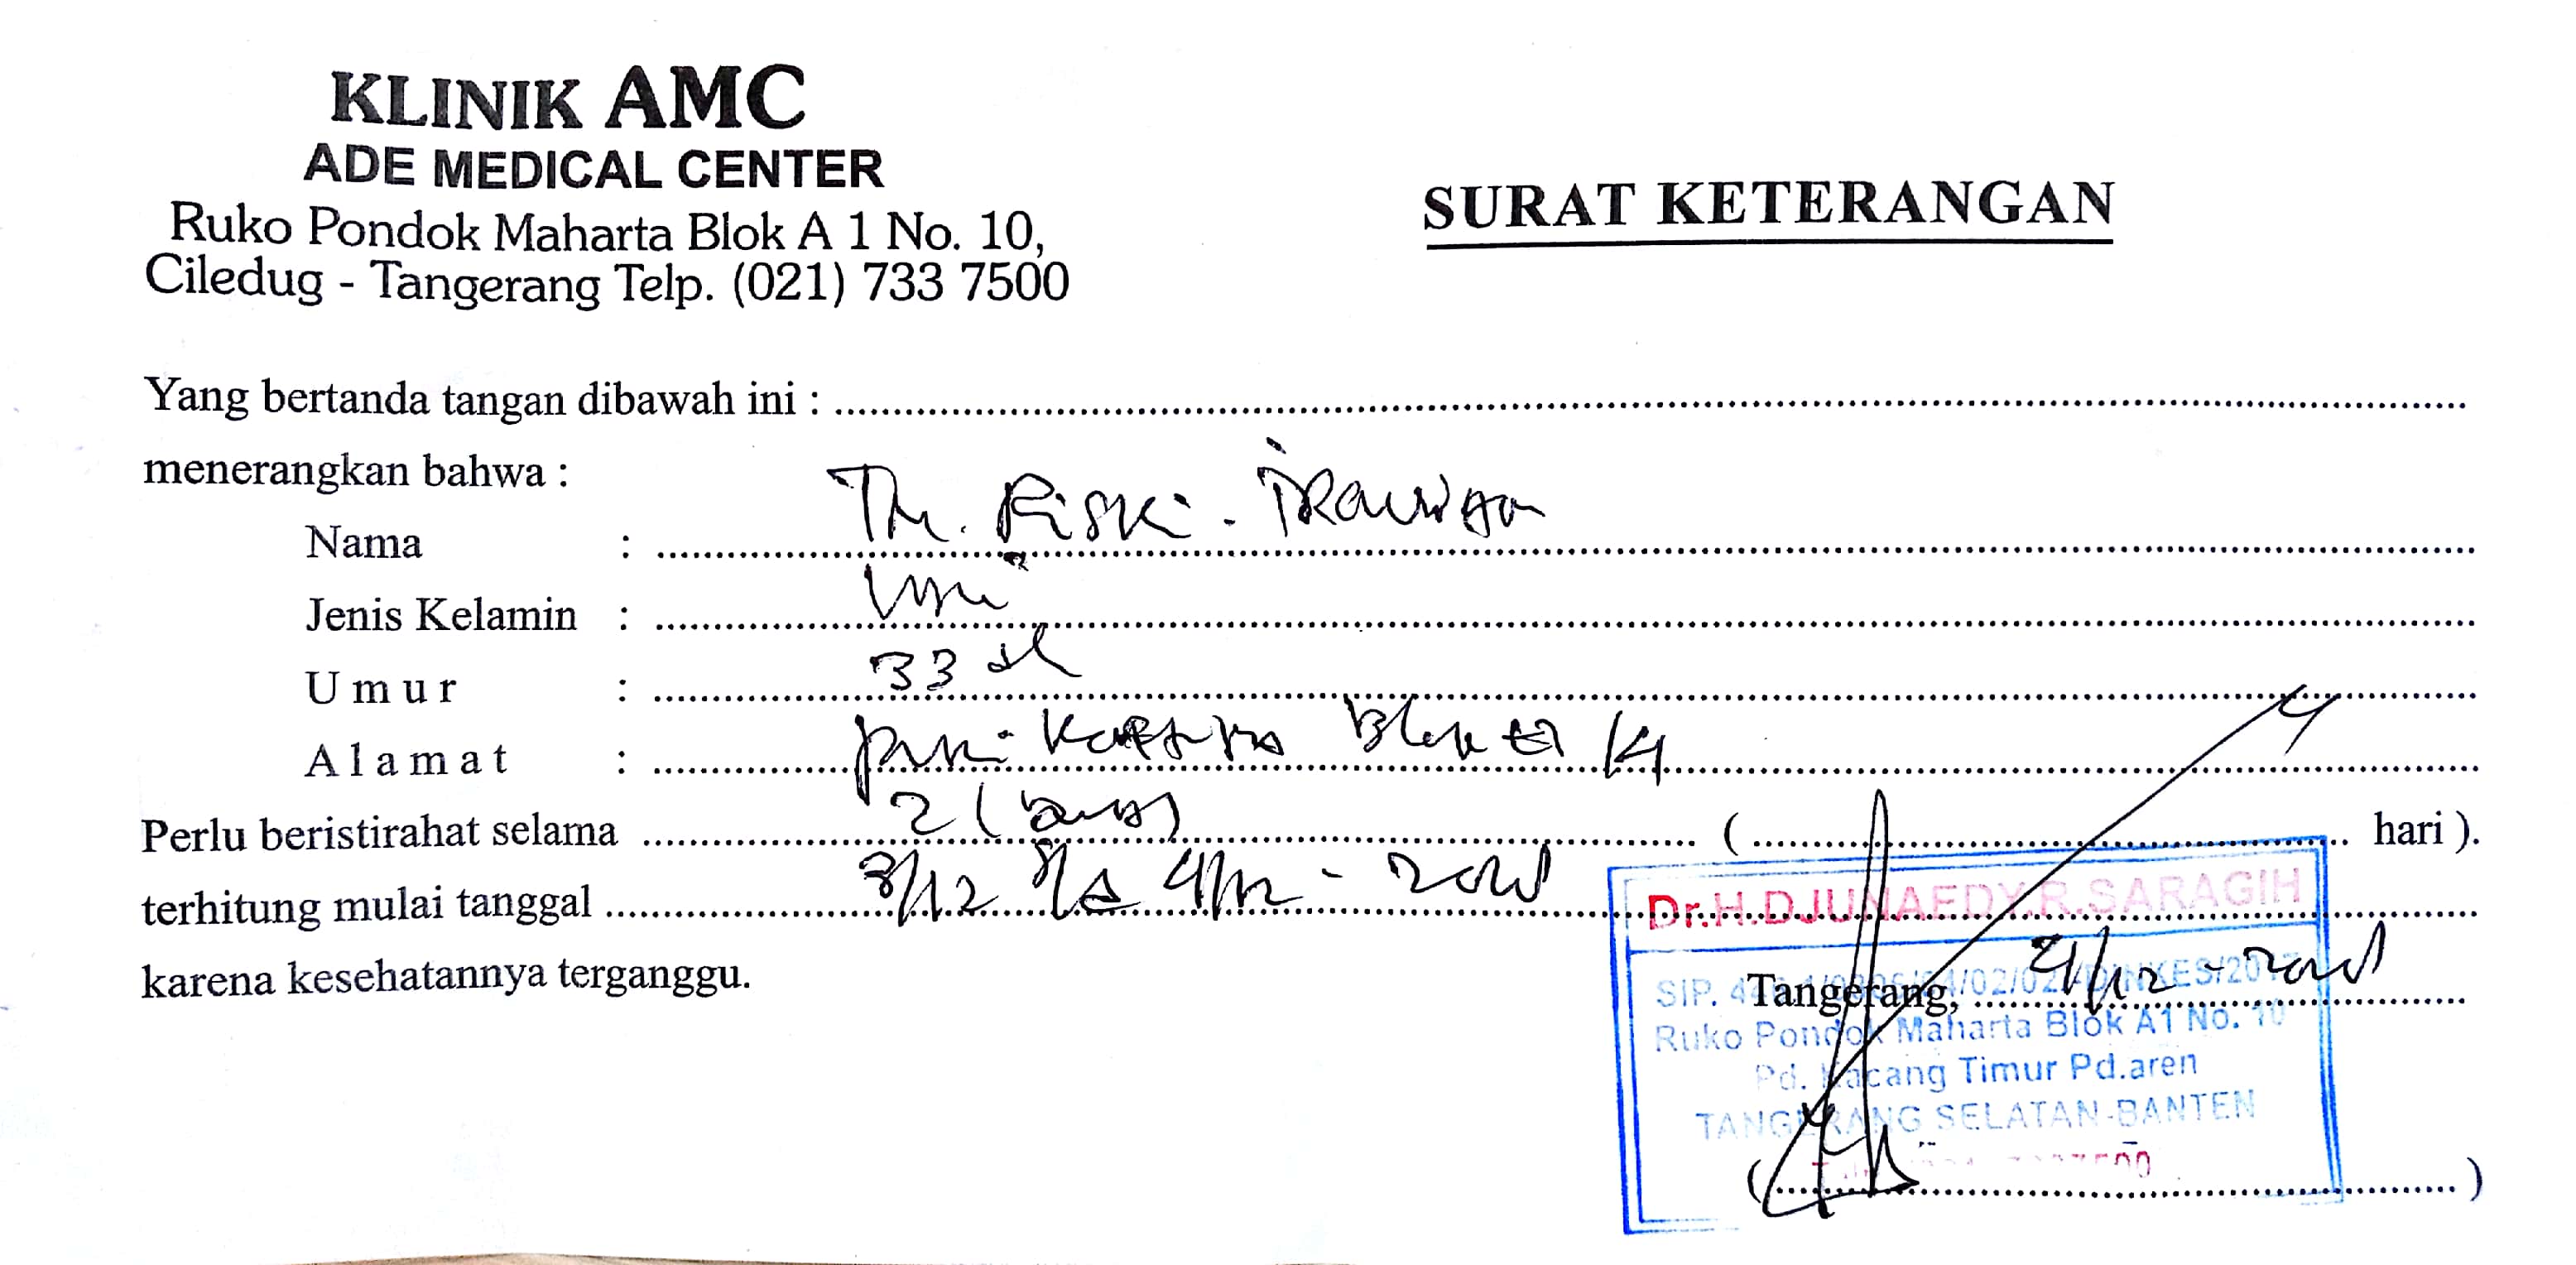 KLINIK AMC
ADE MEDICAL CENTER
Ruko Pondok Maharta Blok A 1 No. 10,
Ciledug - Tangerang Telp. (021) 733 7500
SURAT KETERANGAN
Yang bertanda tangan dibawah ini :
menerangkan bahwa :
Nama : Tn. Riski. Irawan
Jenis Kelamin :
Umur : 33 th
Alamat : Blok 14
Perlu beristirahat selama 2 (dua) ( hari ).
terhitung mulai tanggal 3/12 s/d 4/12 -
karena kesehatannya terganggu.
Dr.H.DJUNAEDY.R.SARAGIH
Tangerang, 4/12 -
SIP. DINKES/2017
Ruko Pondok Maharta Blok A1 No. 10
Pd. Kacang Timur Pd.aren
TANGERANG SELATAN-BANTEN
( )